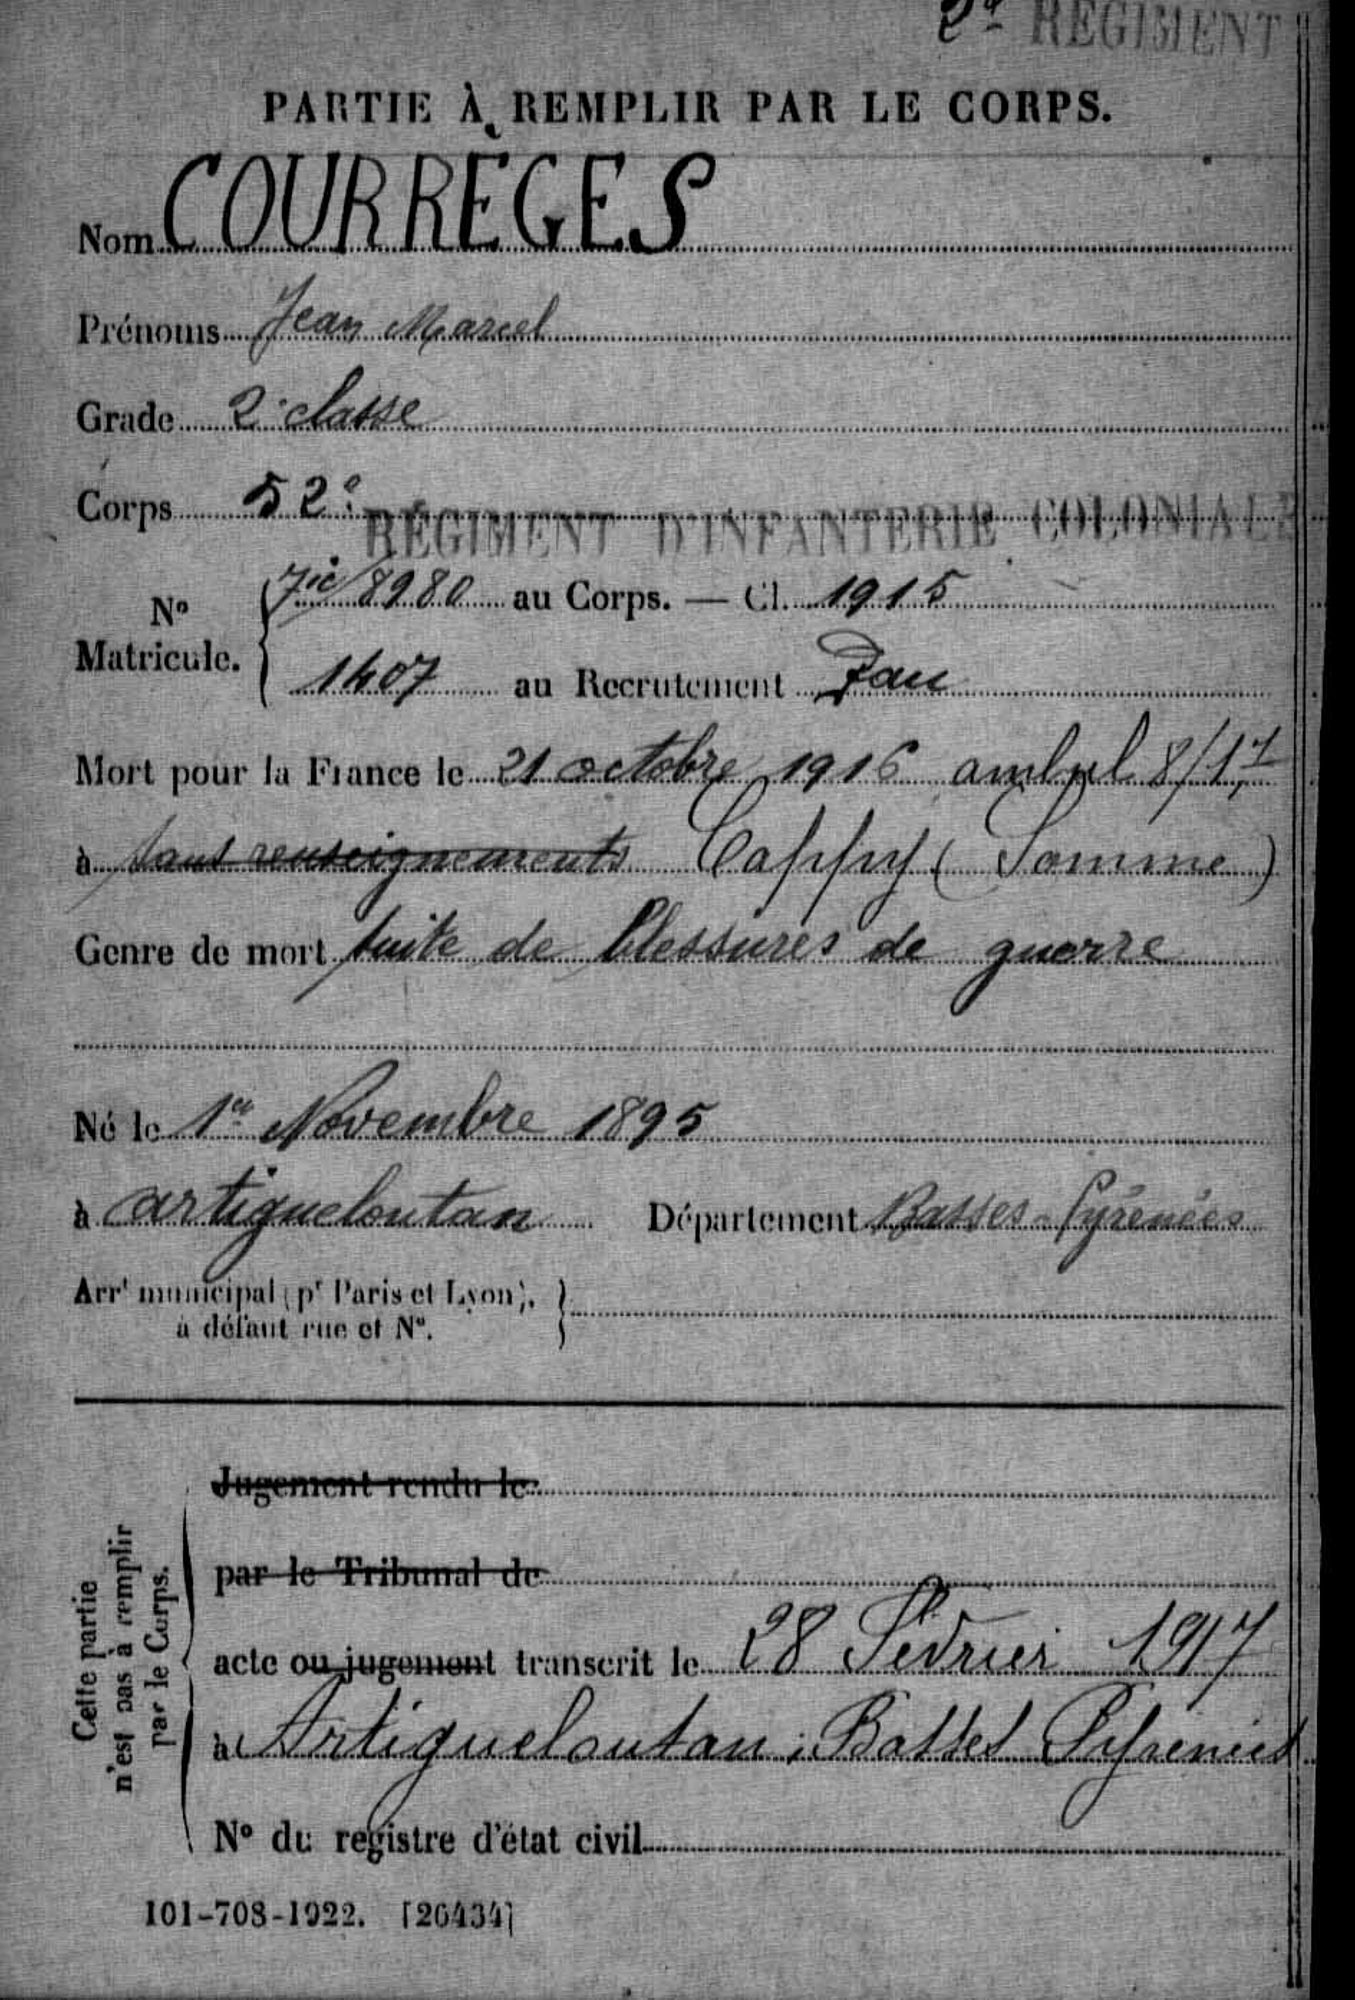 2e REGIMENT
PARTIE À REMPLIR PAR LE CORPS.
Nom COURRÈGES
Prénoms Jean Marcel
Grade 2e classe
Corps 52e RÉGIMENT D'INFANTERIE COLONIALE
No Matricule. { 7ic/8980 au Corps. — Cl. 1915
1407 au Recrutement Pau
Mort pour la France le 21 octobre 1916 ambul 8/17
à sans renseignements Cappy (Somme)
Genre de mort suite de blessures de guerre
Né le 1er Novembre 1895
à artigueloutan Département Basses-Pyrénées
Arrt municipal (pr Paris et Lyon), }
à défaut rue et No.
Cette partie n'est pas à remplir par le Corps.
Jugement rendu le
par le Tribunal de
acte ou jugement transcrit le 28 Février 1917
à Artigueloutan, Basses Pyrénées
No du registre d'état civil
101-708-1922. [26434]